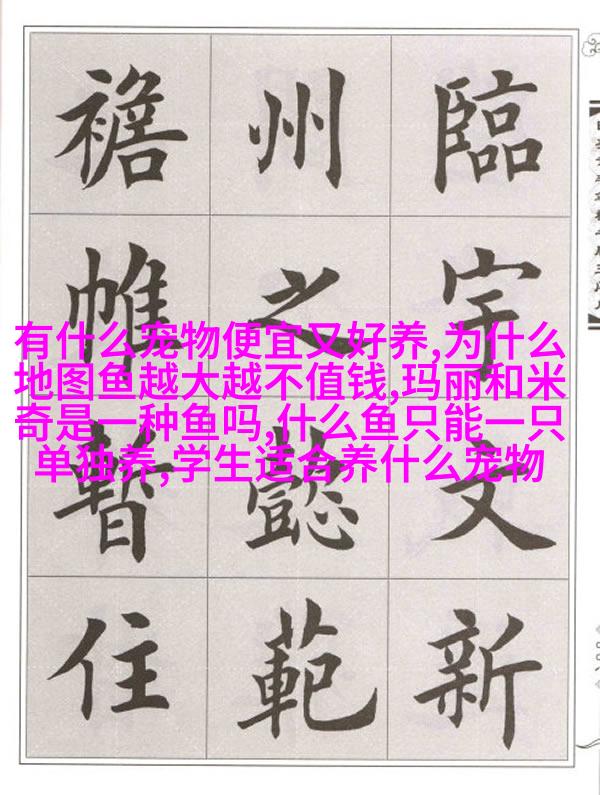 臨宇文新
州之懿範
襜帷暫住
有什么宠物便宜又好养,为什么
地图鱼越大越不值钱,玛丽和米
奇是一种鱼吗,什么鱼只能一只
单独养,学生适合养什么宠物